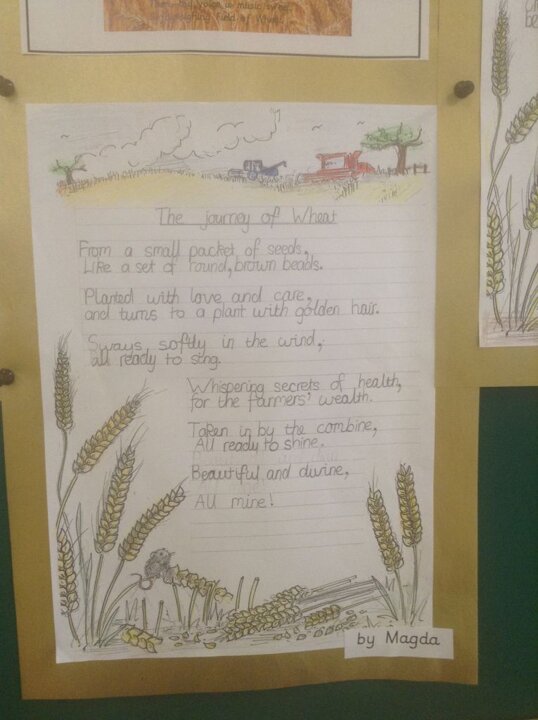 The journey of Wheat
From a small packet of seeds,
Like a set of round, brown beads.
Planted with love and care,
and turns to a plant with golden hair.
Sways softly in the wind,
all ready to sing.
Whispering secrets of health,
for the farmers' wealth.
Taken in by the combine,
All ready to shine.
Beautiful and divine,
All mine!
by Magda